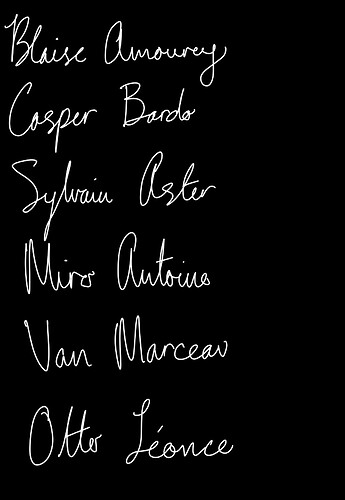 Blaise Amourey
Casper Bardo
Sylvain Aster
Miro Antoine
Van Marceau
Otto Léonce